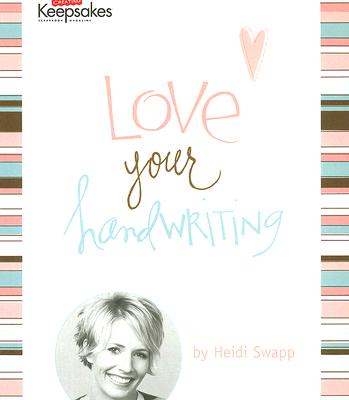 CREATING
Keepsakes
SCRAPBOOK MAGAZINE
Love
your
handWRITING
by Heidi Swapp